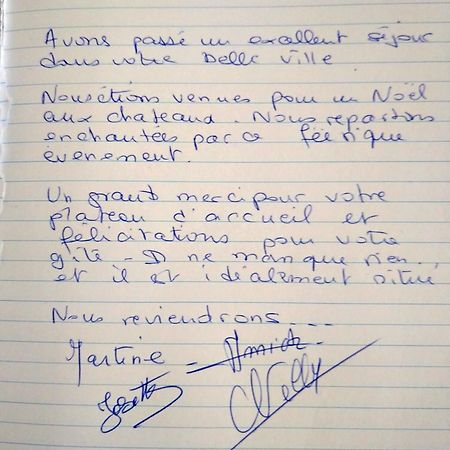 Avons passé un excellent séjour
dans votre belle ville
Nous étions venues pour un Noël
aux chateaux. Nous repartons
enchantées par ce féérique
évenement.
Un grand merci pour votre
plateau d'accueil et
félicitations pour votre
gîte - Il ne manque rien..
et il est idéalement situé
Nous reviendrons ...
Martine -
Nelly